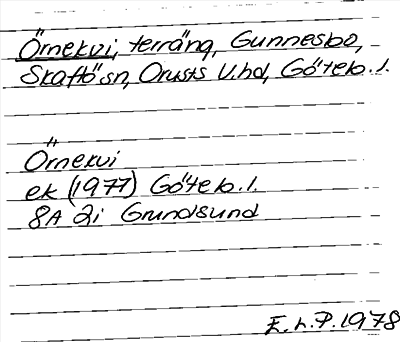 Örnekvi, terräng, Gunnesbo,
Skaftö sn, Orusts V. hd, Göteb. l.
Örnekvi
ek (1977) Göteb. l.
8A 2i Grundsund
E. L. P. 1978